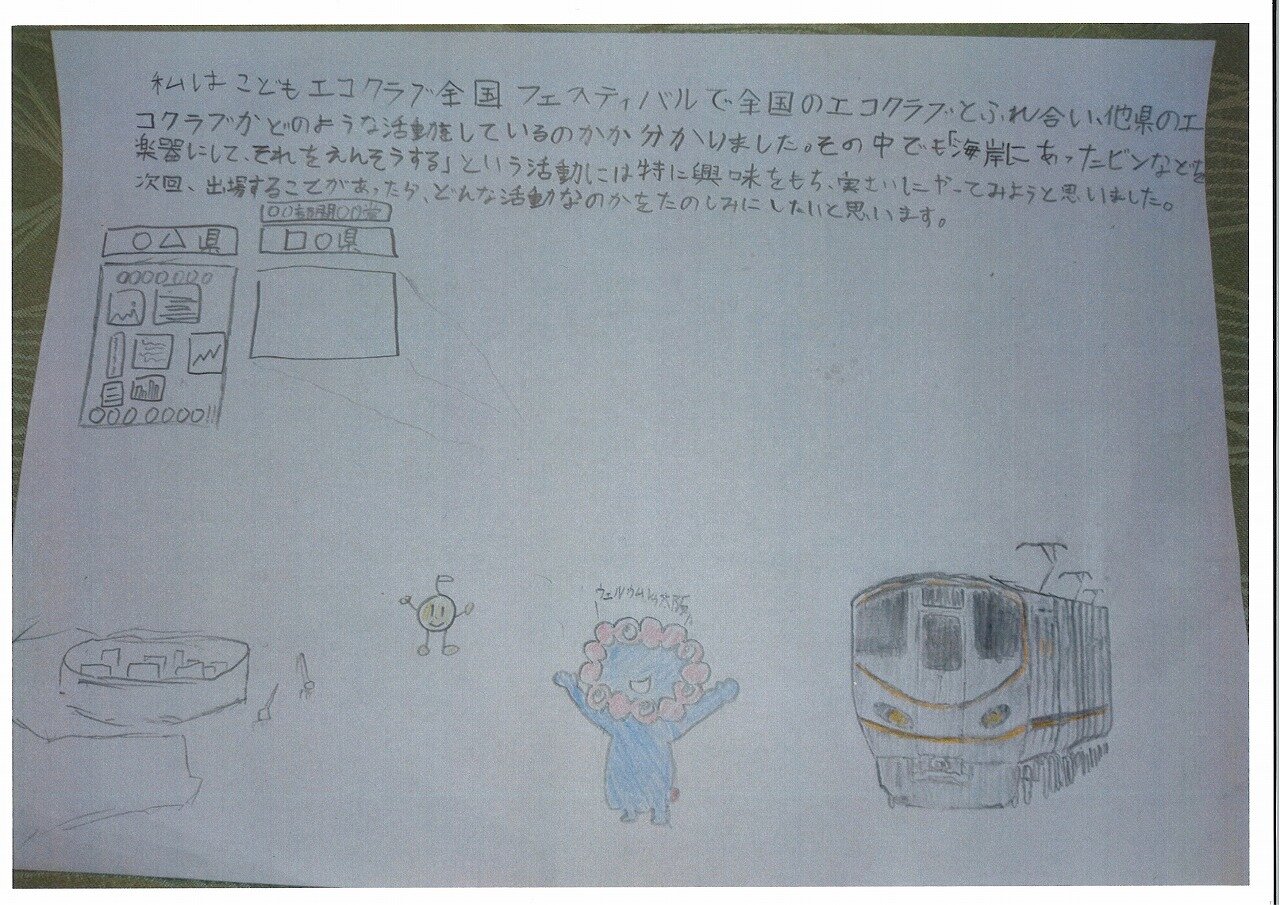 私はこどもエコクラブ全国フェスティバルで全国のエコクラブとふれ合い、他県のエ
コクラブがどのような活動をしているのかが分かりました。その中でも「海岸にあったビンなどを
楽器にして、それをえんそうする」という活動には特に興味をもち、実さいにやってみようと思いました。
次回、出場することがあったら、どんな活動なのかをたのしみにしたいと思います。
○△県
□○県